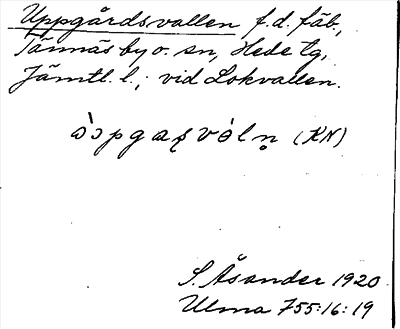 Uppgårdsvallen f.d. fäb.,
Tännäs by o. sn, Hede tg,
Jämtl. l.; vid Lokvallen.
(KN)
S. Åsander 1920
Ulma 755:16:19